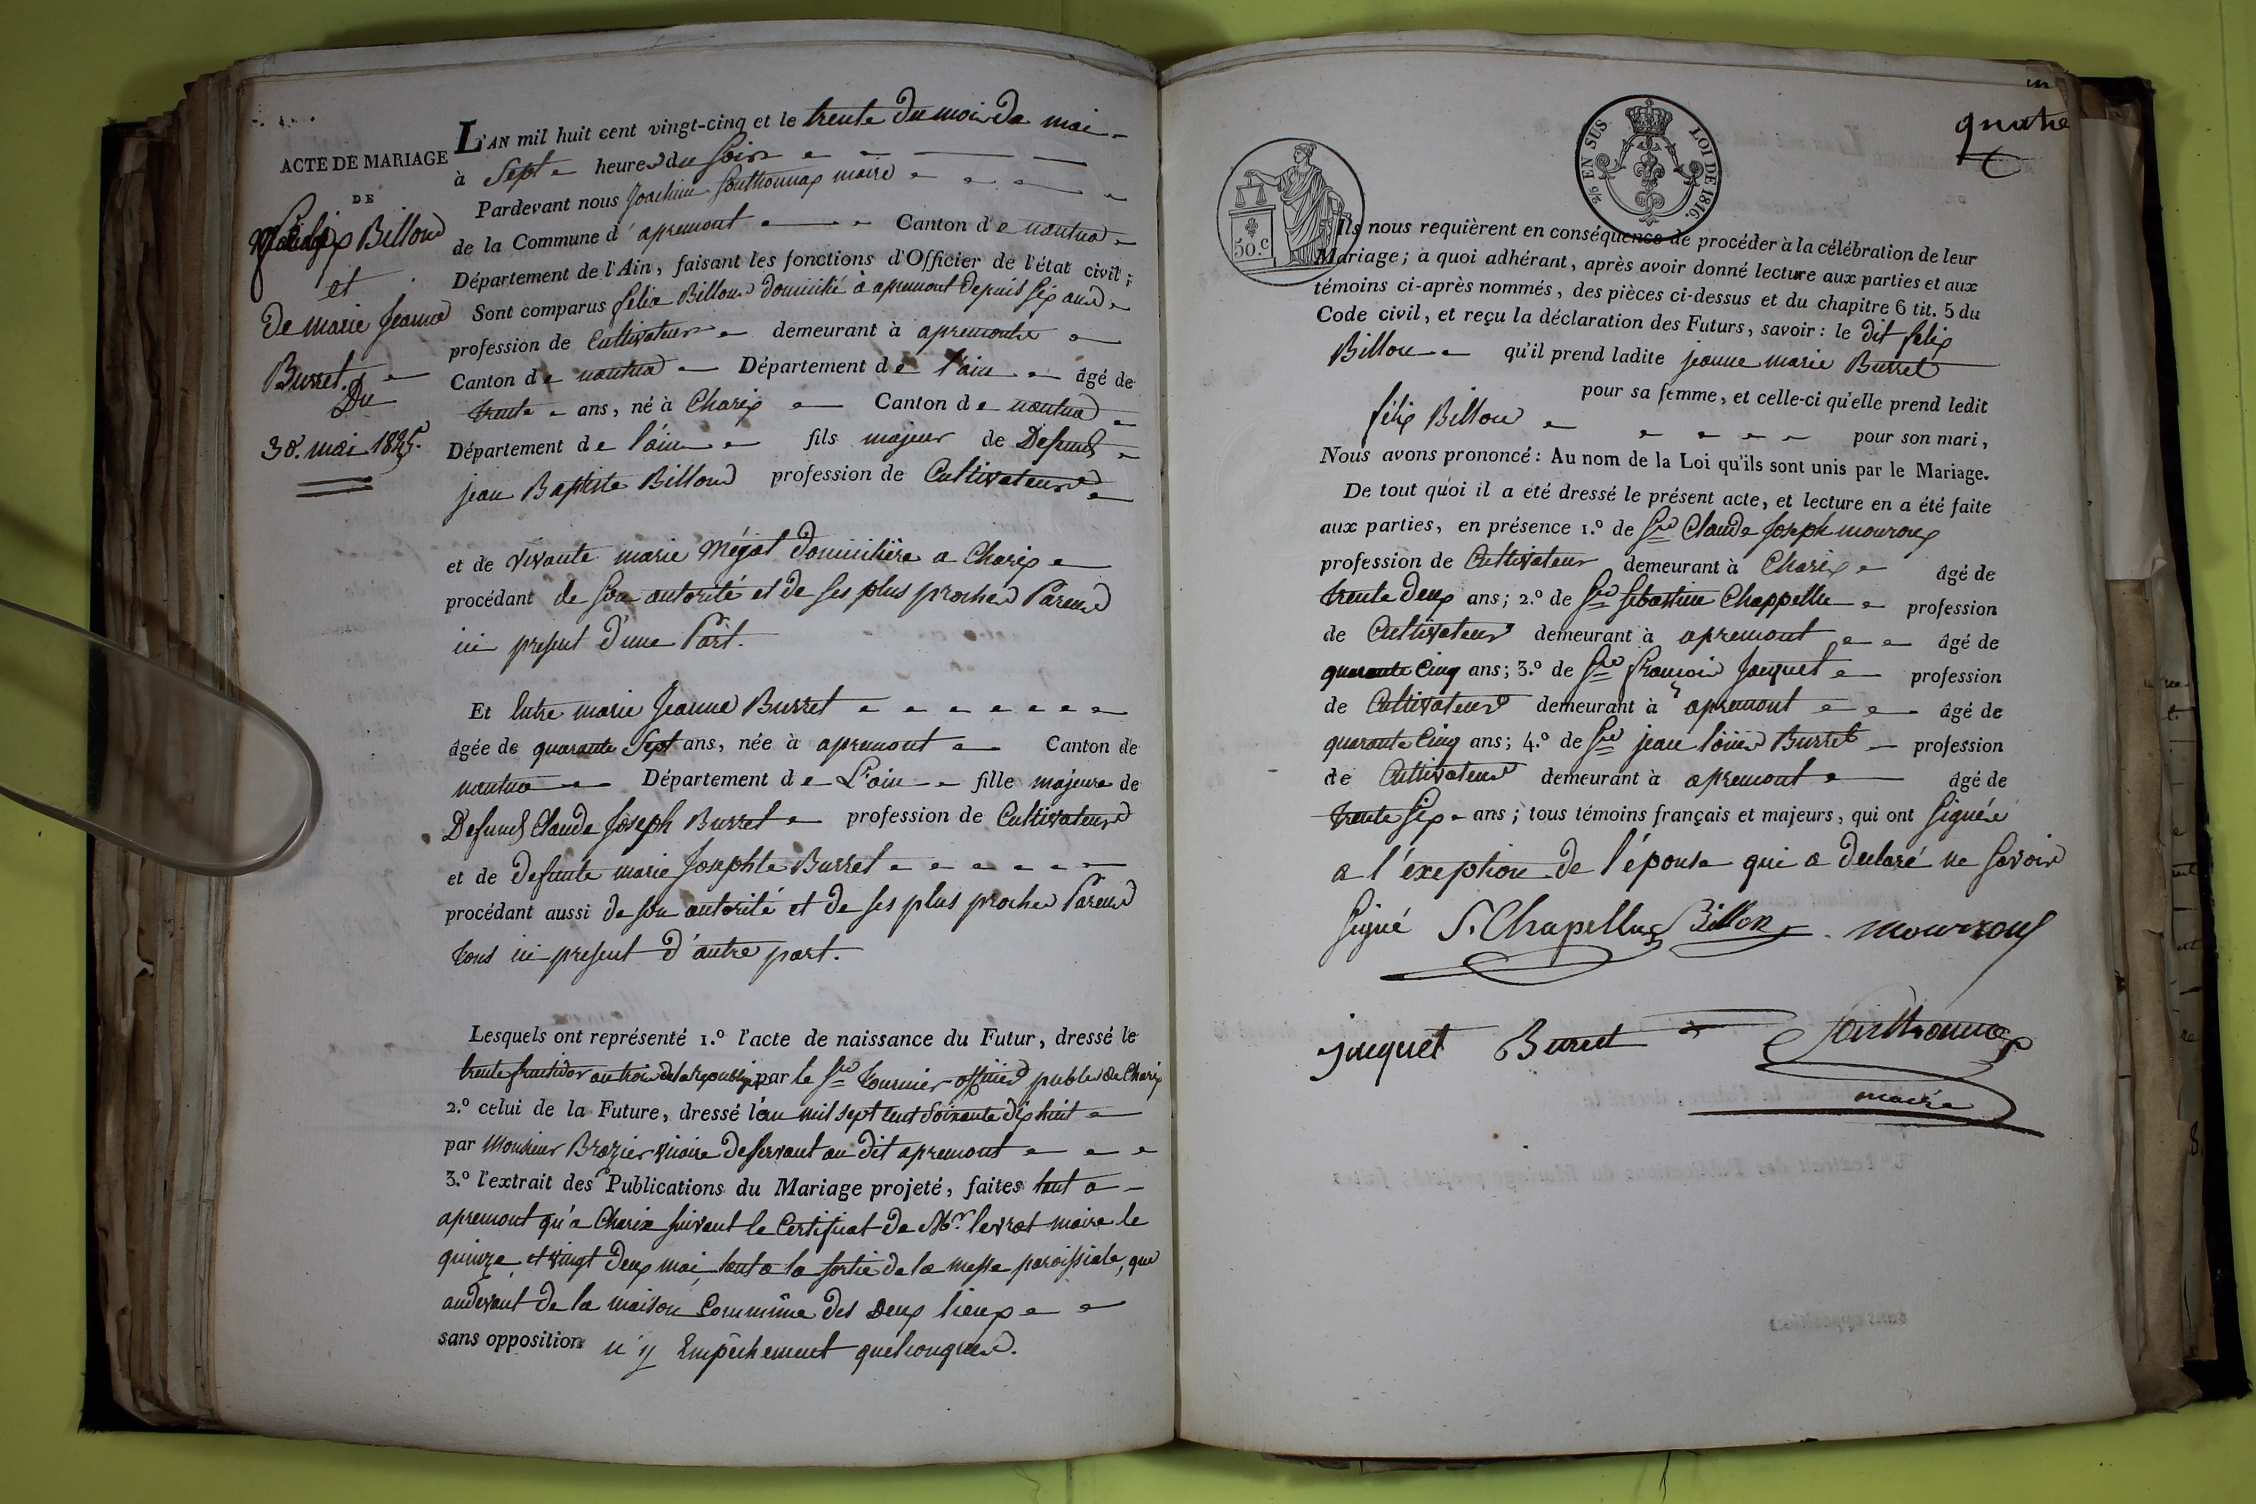 ACTE DE MARIAGE
DE
Felix Billoud
et
De marie Jeanne
Burret.
Du
30. mai 1825.
L'AN mil huit cent vingt-cinq et le trente du mois de mai
à Sept heures du Soir
Pardevant nous Joachim Southonnax maire
de la Commune d'apremont Canton de nantua
Département de l'Ain, faisant les fonctions d'Officier de l'état civil;
Sont comparus felix Billoud domicilié à apremont depuis Six ans
profession de Cultivateur demeurant à apremont
Canton de nantua Département de l'ain âgé de
trente ans, né à Charix Canton de nantua
Département de l'ain fils majeur de Defunt
jean Baptiste Billoud profession de Cultivateur
et de vivante marie Mégat domicilière a Charix
procédant de son autorité et de ses plus proches Parens
ici present d'une Part.
Et Entre marie Jeanne Burret
âgée de quarante Sept ans, née à apremont Canton de
nantua Département de L'ain fille majeure de
Defunt Claude Joseph Burret profession de Cultivateur
et de defunte marie Josephte Burret
procédant aussi de son autorité et de ses plus proches Parens
tous ici present d'autre part.
Lesquels ont représenté 1.º l'acte de naissance du Futur, dressé le
trente fructidor an trois de la republiq par le Sr Tournier officier public de Charix
2.º celui de la Future, dressé l'an mil sept cent Soixante dix huit
par Monsieur Brazier vicaire deservant au dit apremont
3.º l'extrait des Publications du Mariage projeté, faites tant a
apremont qu'a Charix suivant le Certificat de Mr. levrat maire le
quinze et vingt deux mai, tant a la sortie de la messe paroissiale, que
audevant de la maison Commune des Deux lieux
sans opposition n'y Empêchement quelconques.
quatre
2/10 EN SUS. LOI DE 1816.
50.c
Ils nous requièrent en conséquence de procéder à la célébration de leur
Mariage; à quoi adhérant, après avoir donné lecture aux parties et aux
témoins ci-après nommés, des pièces ci-dessus et du chapitre 6 tit. 5 du
Code civil, et reçu la déclaration des Futurs, savoir: le dit felix
Billou qu'il prend ladite jeanne marie Burret
pour sa femme, et celle-ci qu'elle prend ledit
felix Billou pour son mari,
Nous avons prononcé: Au nom de la Loi qu'ils sont unis par le Mariage.
De tout quoi il a été dressé le présent acte, et lecture en a été faite
aux parties, en présence 1.º de Sr Claude Joseph mouroux
profession de Cultivateur demeurant à Charix âgé de
trente deux ans; 2.º de Sr Sebastien Chappellu profession
de Cultivateur demeurant à apremont âgé de
quarante Cinq ans; 3.º de Sr francois Jacquet profession
de Cultivateur demeurant à apremont âgé de
quarante Cinq ans; 4.º de Sr jean louis Burret profession
de Cultivateur demeurant à apremont âgé de
trente Six ans; tous témoins français et majeurs, qui ont Signés
a l'exeption de l'épouse qui a declaré ne savoir
Signé S. Chapellu Billon mourroux
jacquet Burret Southonnax
maire